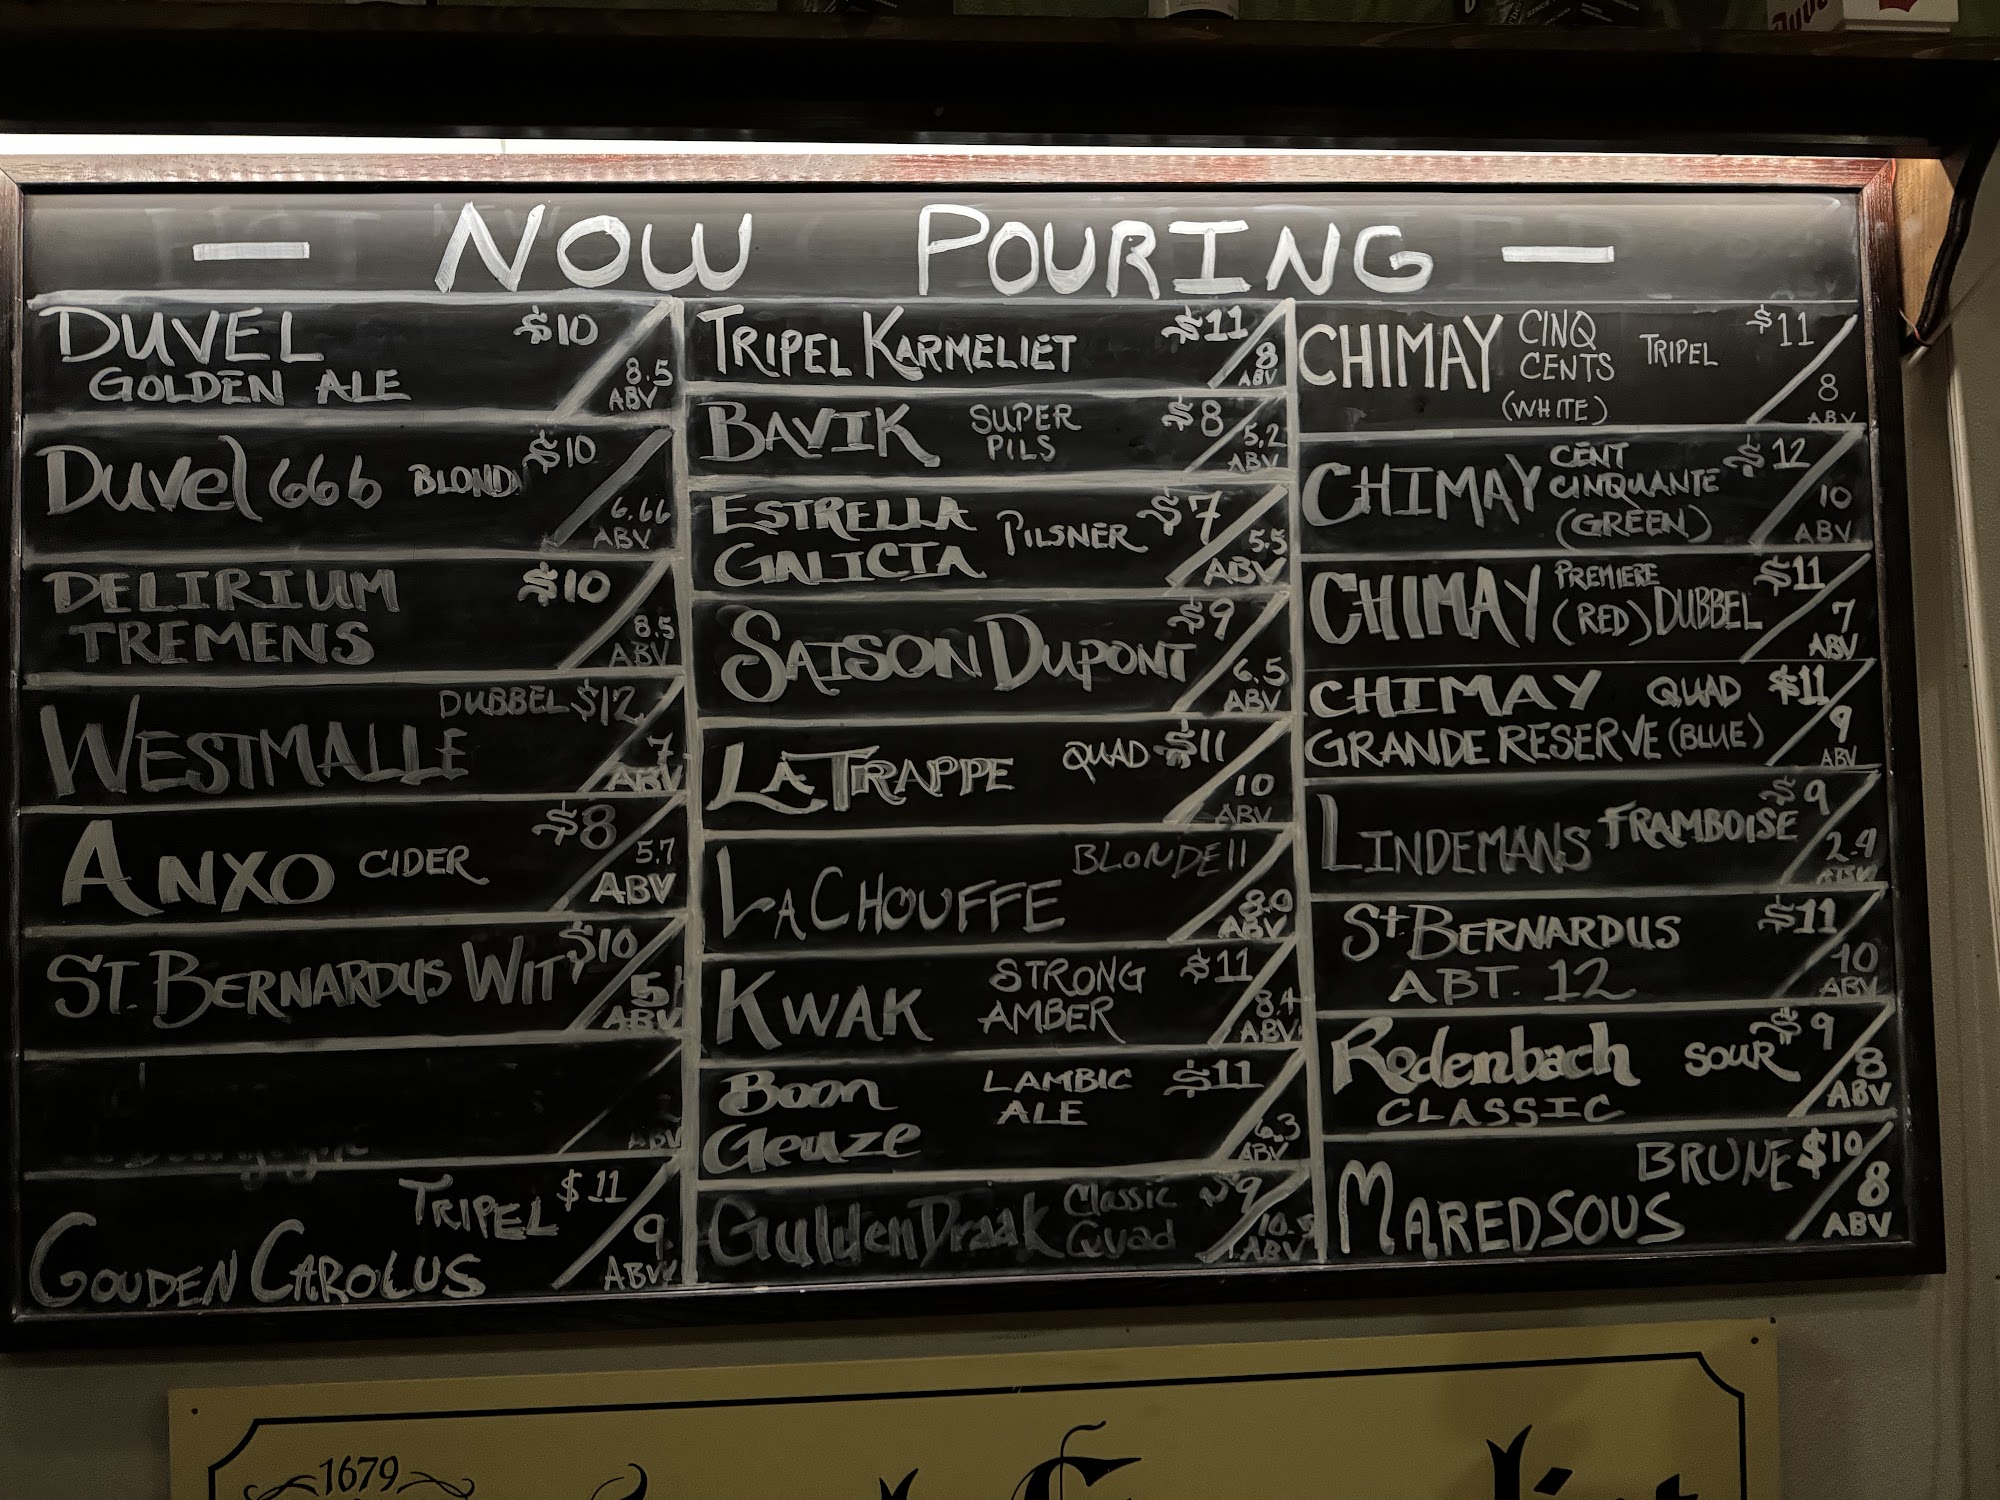 — NOW POURING —
DUVEL $10
GOLDEN ALE 8.5
ABV
Duvel 666 BLOND $10
6.66
ABV
DELIRIUM $10
TREMENS 8.5
ABV
DUBBEL $12
WESTMALLE 7
ABV
ANXO CIDER $8
5.7
ABV
ST. BERNARDUS WIT $10
5
ABV
ABV
TRIPEL $11
GOUDEN CAROLUS 9
ABV
TRIPEL KARMELIET $11
8
ABV
BAVIK SUPER $8
PILS 5.2
ABV
ESTRELLA PILSNER $7
GALICIA 5.5
ABV
SAISON DUPONT $9
6.5
ABV
LA TRAPPE QUAD $11
10
ABV
BLONDE 11
LA CHOUFFE 8.0
ABV
KWAK STRONG $11
AMBER 8.4
ABV
Boon LAMBIC $11
Geuze ALE 6.3
ABV
Gulden Draak Classic $9
Quad 10.5
ABV
CHIMAY CINQ TRIPEL $11
CENTS 8
(WHITE) ABV
CHIMAY CENT $12
CINQUANTE 10
(GREEN) ABV
CHIMAY PREMIERE $11
(RED) DUBBEL 7
ABV
CHIMAY QUAD $11
GRANDE RESERVE (BLUE) 9
ABV
LINDEMANS FRAMBOISE $9
ABV
St. BERNARDUS $11
ABT. 12 10
ABV
Rodenbach SOUR $9
CLASSIC 8
ABV
BRUNE $10
MAREDSOUS 8
ABV
1679